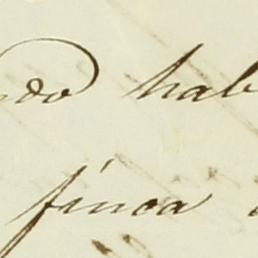 ndo hab
finca